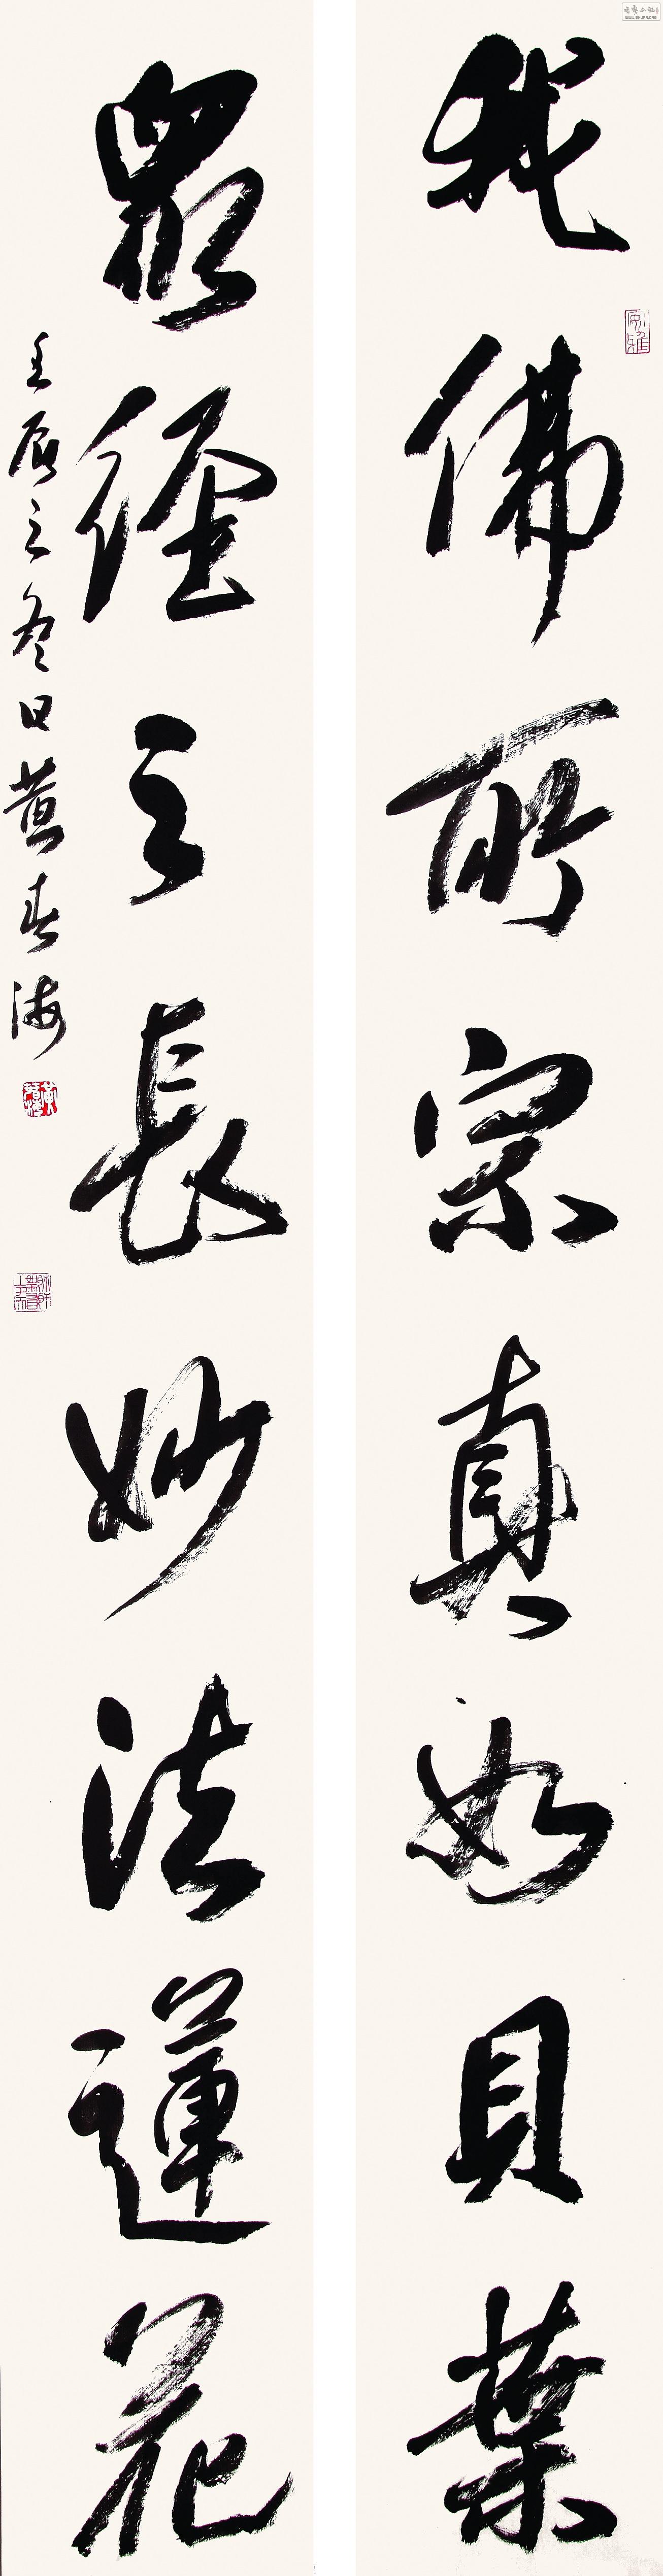 我佛所宗真如貝葉
眾經之長妙法蓮花
壬辰之冬日黄春海